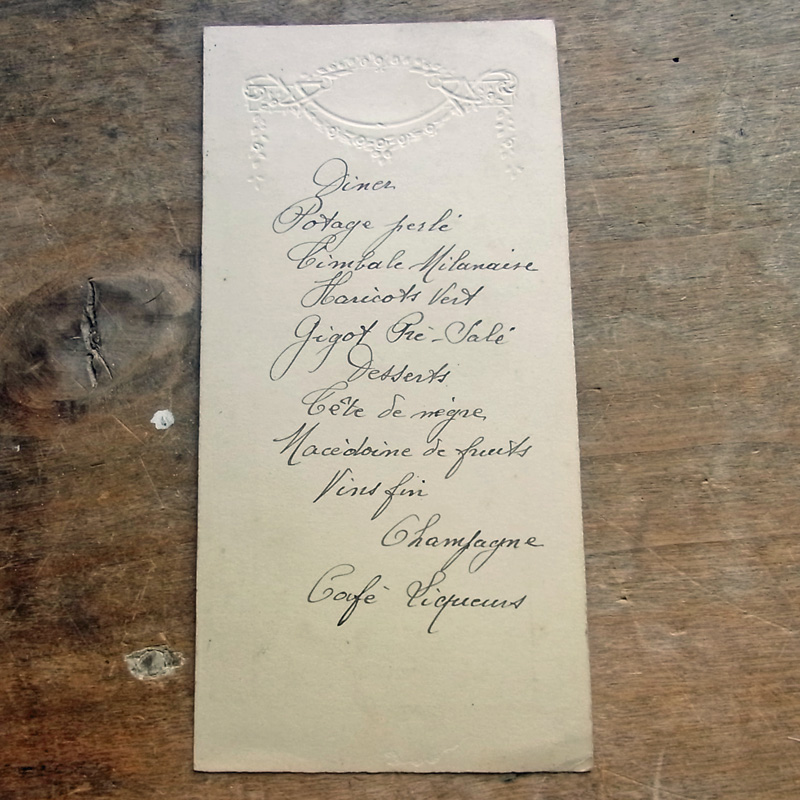 Diner
Potage perlé
Timbale Milanaise
Haricots Vert
Gigot Pré-Salé
Desserts
Tête de nègre
Macédoine de fruits
Vins fin
Champagne
Café Liqueurs